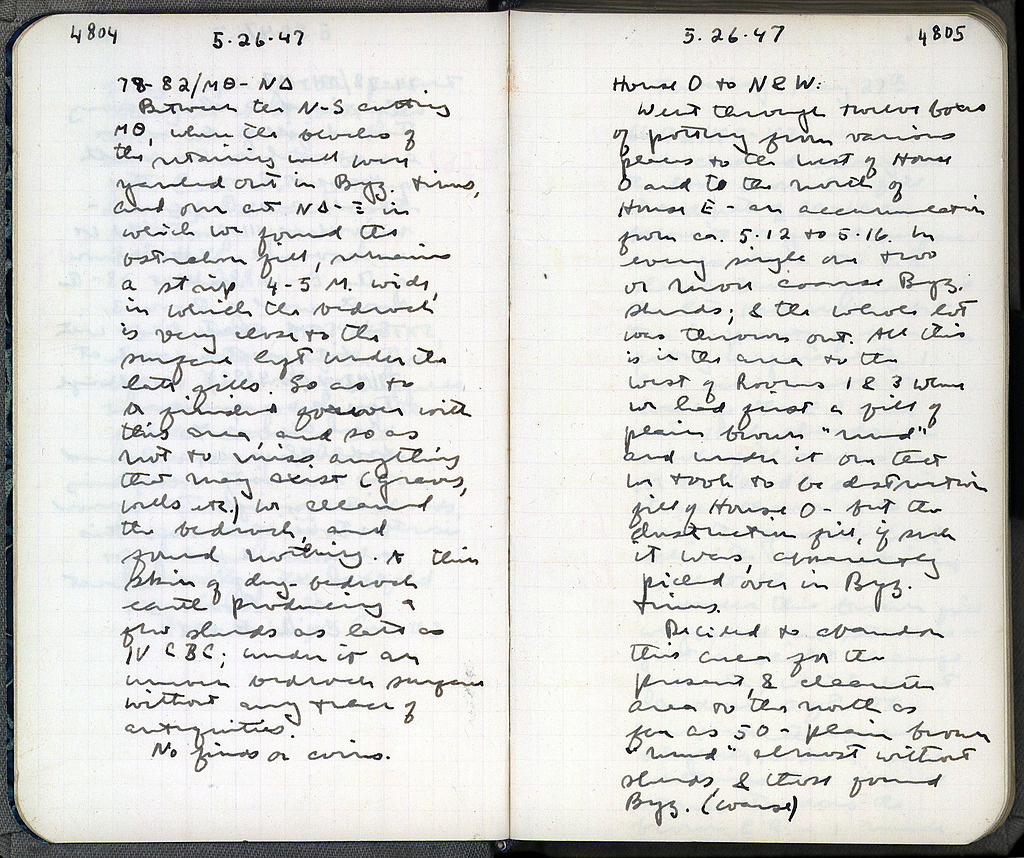 4804
5·26·47
78-82/ΜΘ-ΝΔ
Between the N-S cutting
ΜΘ, where the blocks of
the retaining wall were
yanked out in Byz. times,
and our cut ΝΔ-Ξ in
which we found the
ostrakon fill, remains
a strip 4-5 M. wide,
in which the bedrock
is very close to the
surface left under the
late fills. So as to
be finished for over with
this area, and so as
not to miss anything
that may exist (graves,
wells etc.) we cleaned
the bedrock, and
found nothing. A thin
skin of dug-bedrock
earth producing a
few sherds as late as
IV C BC; under it an
uneven bedrock surface
without any trace of
antiquities.
No finds or coins.
5·26·47
4805
House O to N & W:
Went through twelve boxes
of pottery from various
places to the west of House
O and to the north of
House E - an accumulation
from ca. 5·12 to 5·16. In
every single one two
or more coarse Byz.
sherds; & the whole lot
was thrown out. All this
is in the area to the
west of Rooms 1 & 3 where
we had first a fill of
plain brown "mud"
and under it one that
we took to be destruction
fill of House O - but the
destruction fill, if such
it was, apparently
picked over in Byz.
times.
Decided to abandon
this area for the
present, & clean the
area to the north as
far as 50 - plain brown
"mud" almost without
sherds, & those found
Byz. (coarse)